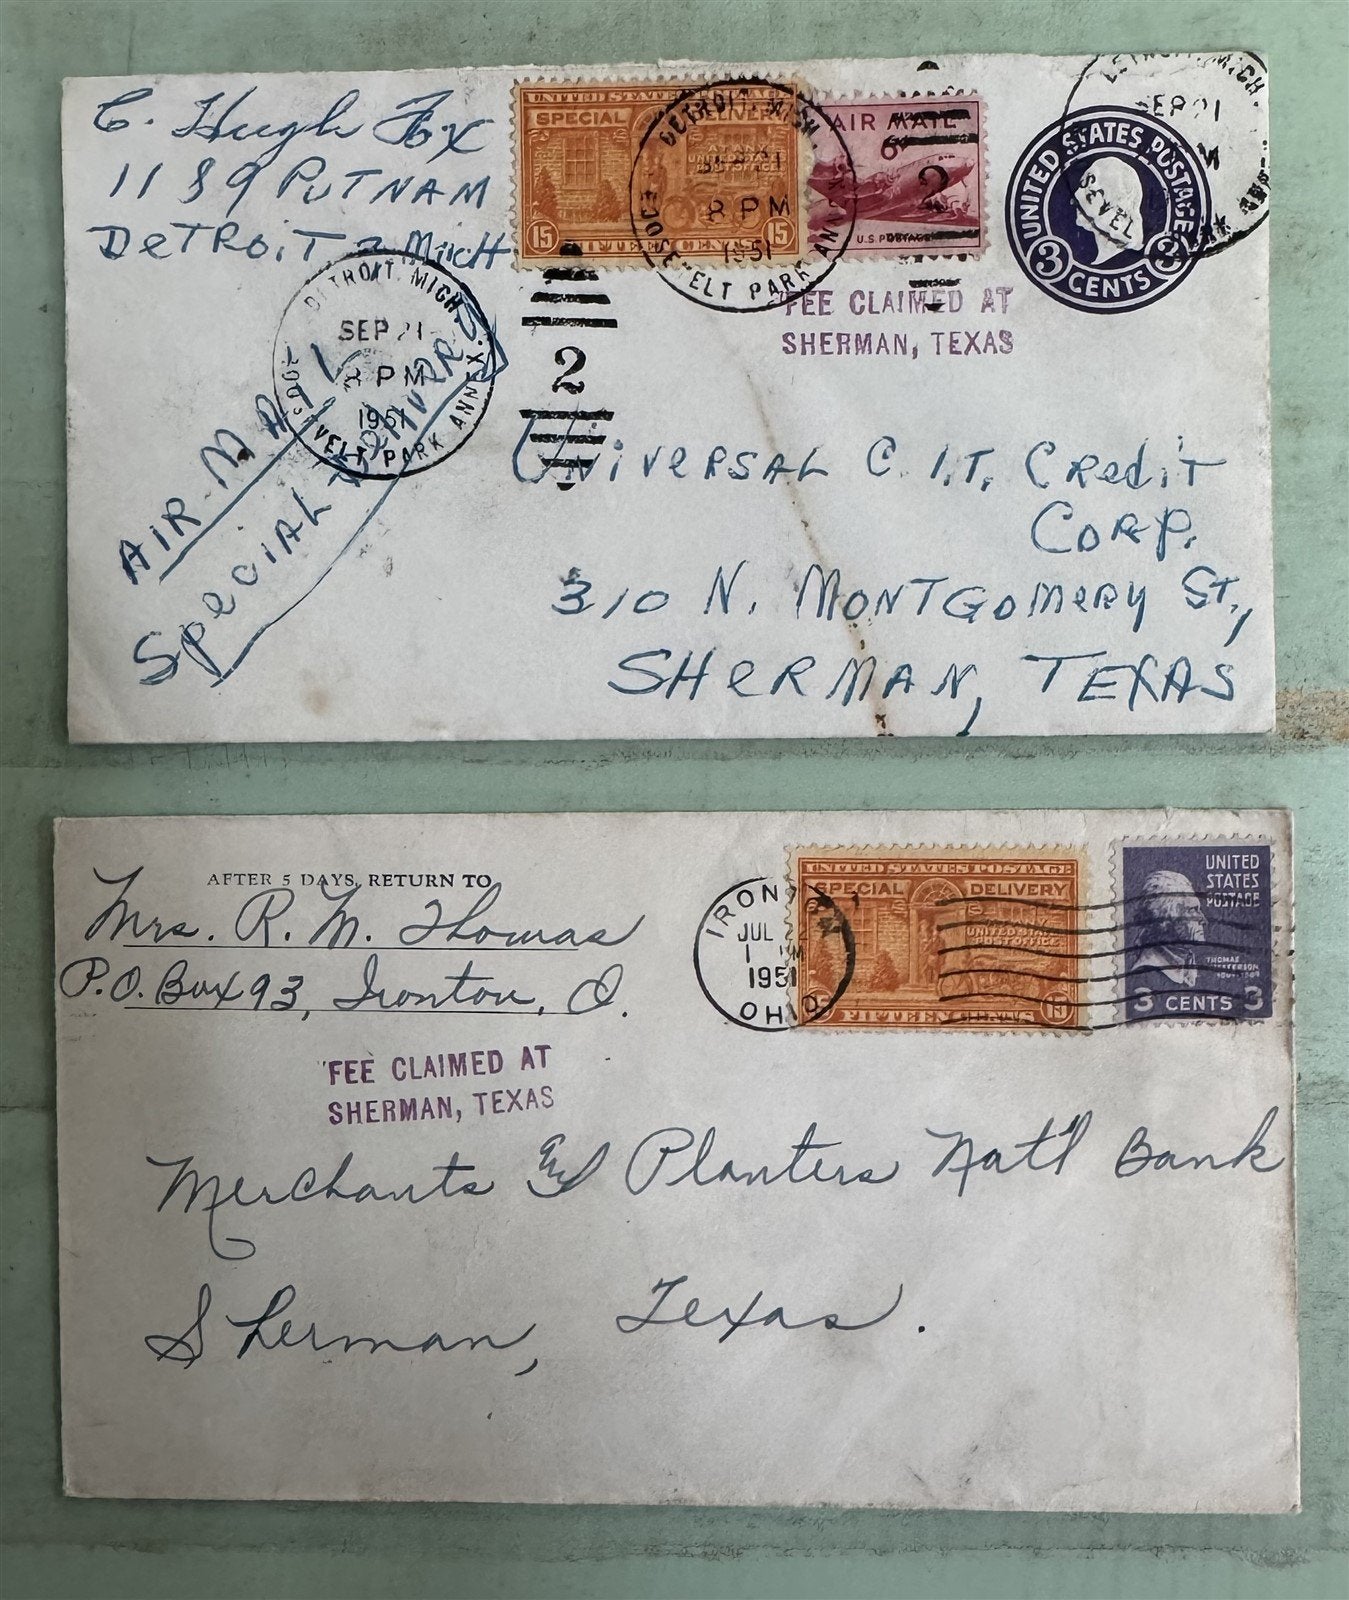 C. Hugh Fox
1189 PUTNAM
DETROIT 2 MICH
UNITED STATES POSTAGE
SPECIAL DELIVERY
AT ANY
UNITED STATES
POST OFFICE
15 FIFTEEN CENTS 15
DETROIT, MICH.
SEP 21
8 PM
1951
ROOSEVELT PARK ANNEX
AIR MAIL
6¢
U.S. POSTAGE
2
UNITED STATES POSTAGE
3 CENTS 3
DETROIT, MICH.
SEP 21
FEE CLAIMED AT
SHERMAN, TEXAS
DETROIT, MICH.
SEP 21
8 PM
1951
ROOSEVELT PARK ANNEX.
2
AIR MAIL
SPECIAL DELIVERY
UNIVERSAL C.I.T. CREDIT
CORP.
310 N. MONTGOMERY ST.,
SHERMAN, TEXAS
AFTER 5 DAYS, RETURN TO
Mrs. R. M. Thomas
P.O. Box 93, Ironton, O.
IRONTON
JUL 22
1 PM
1951
OHIO
UNITED STATES POSTAGE
SPECIAL DELIVERY
AT ANY
UNITED STATES
POST OFFICE
FIFTEEN CENTS 15
UNITED
STATES
POSTAGE
THOMAS
JEFFERSON
3 CENTS 3
FEE CLAIMED AT
SHERMAN, TEXAS
Merchants and Planters Nat'l Bank
Sherman, Texas.